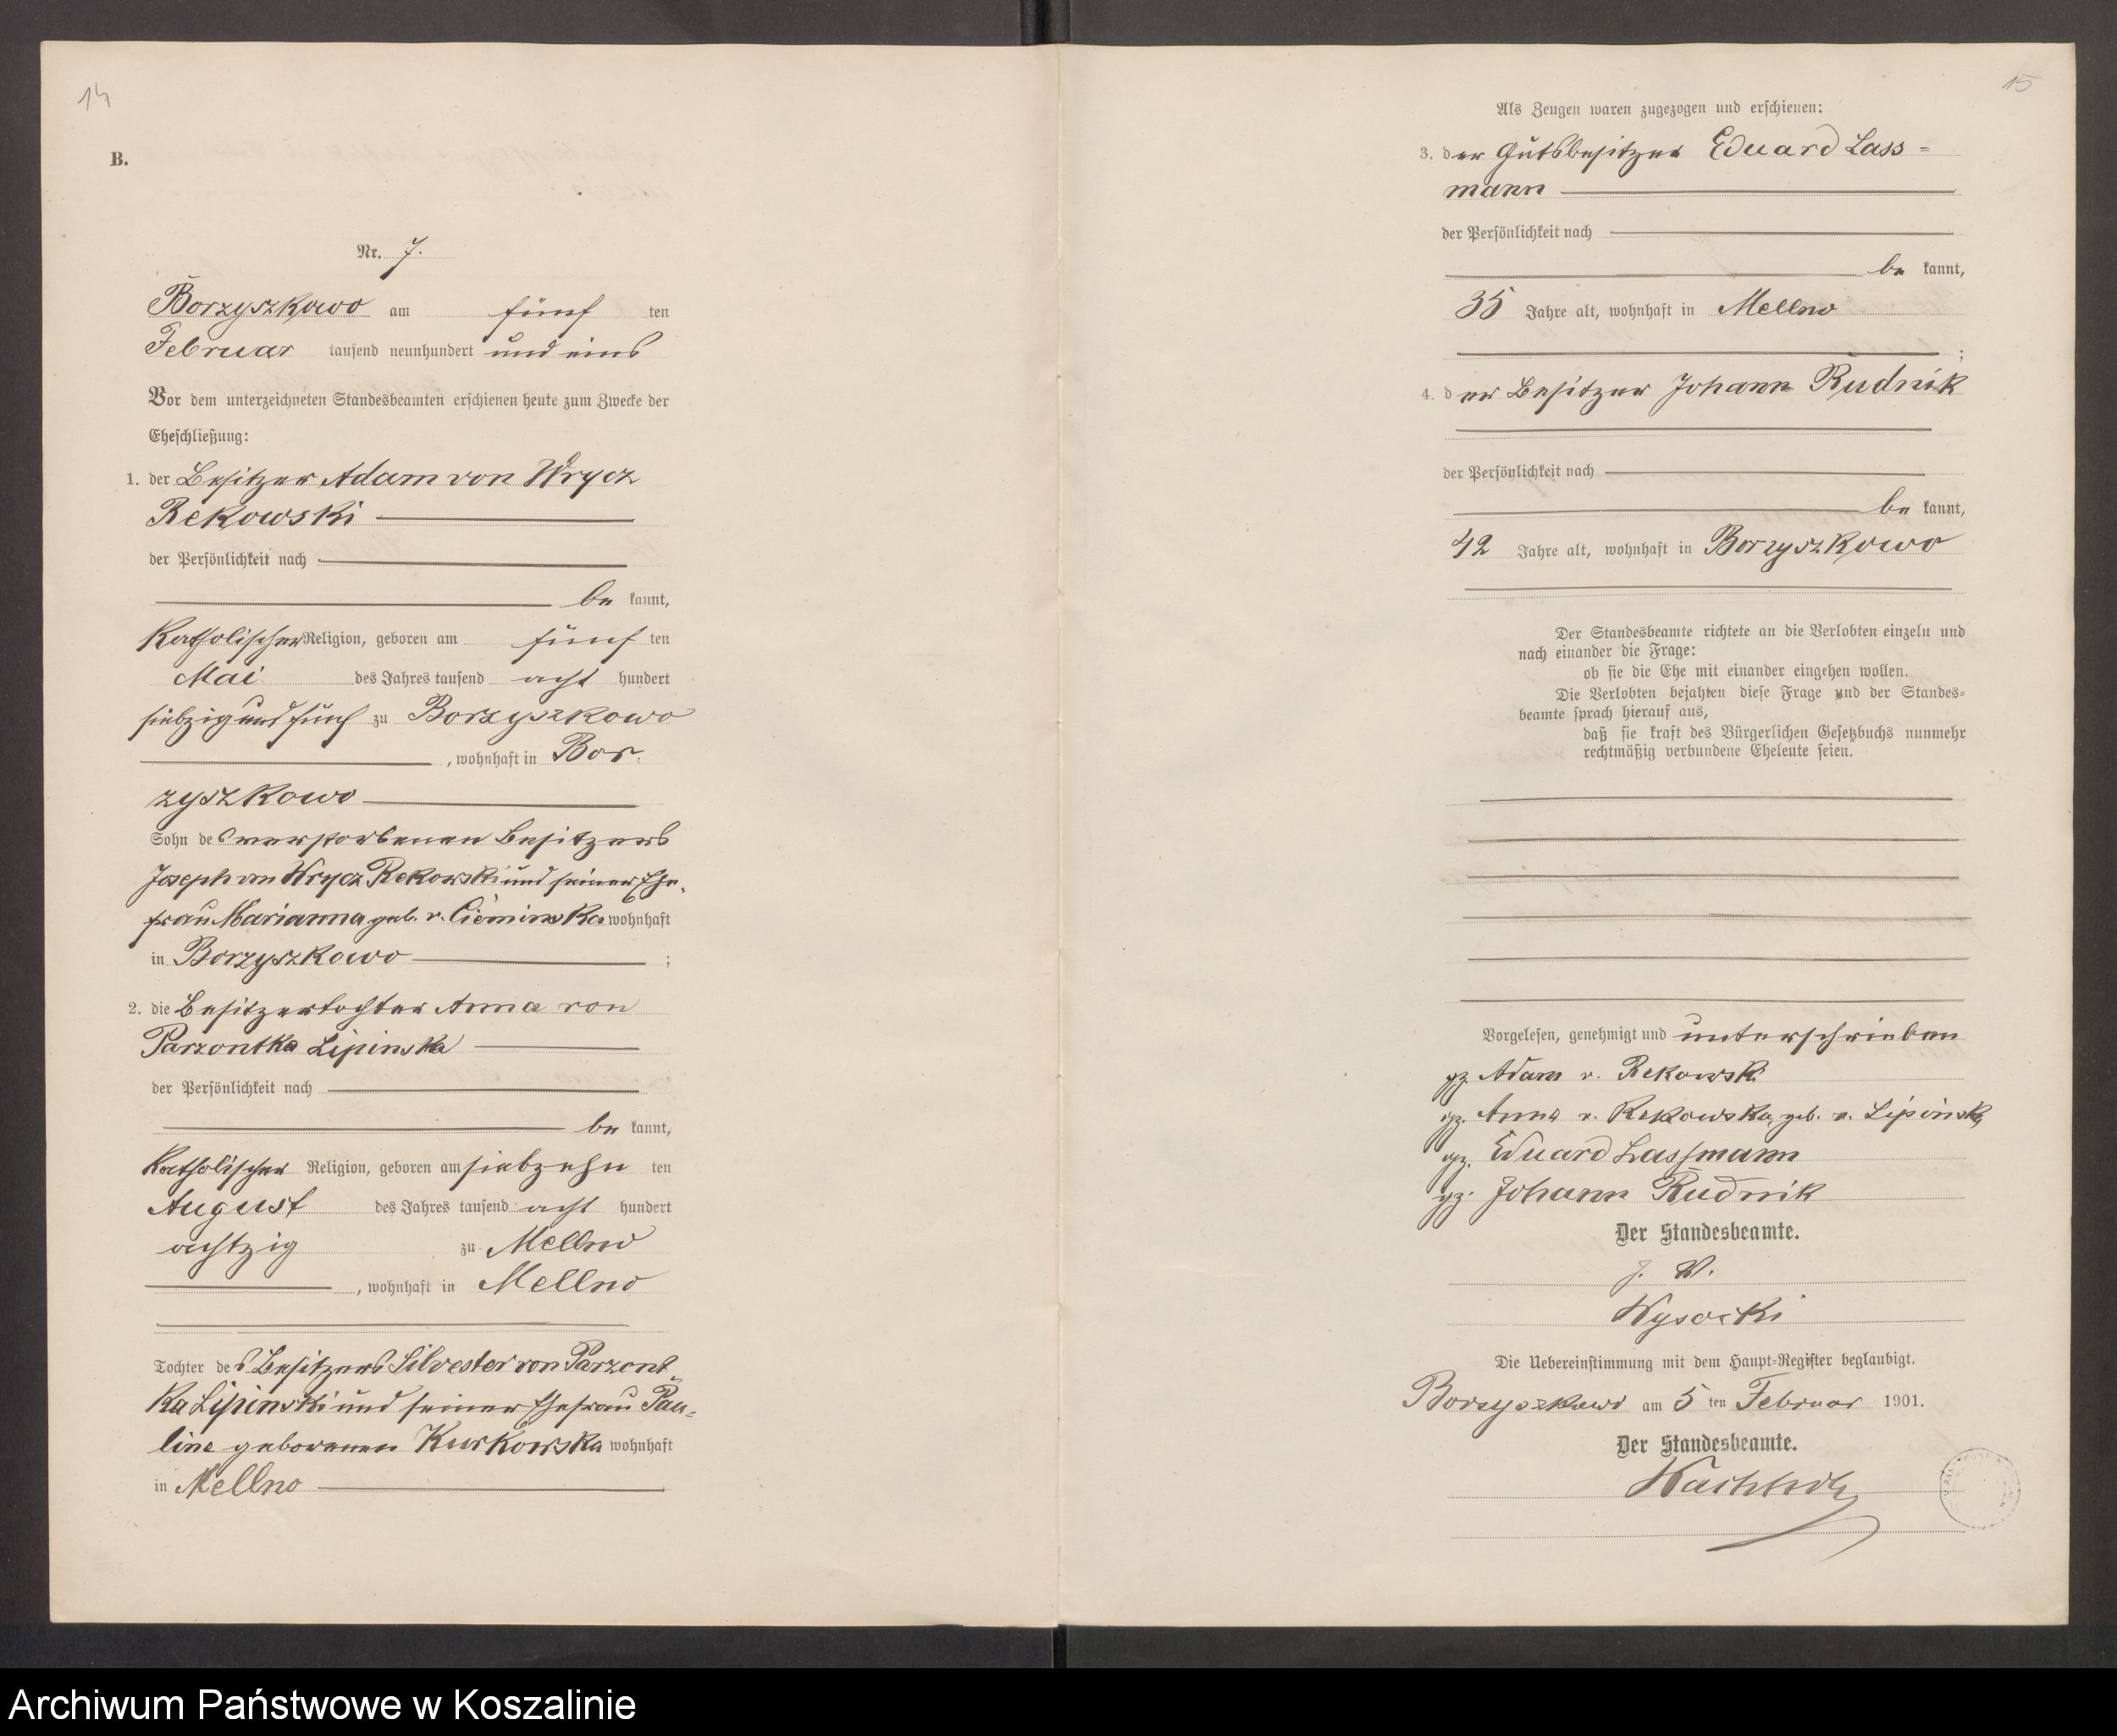 14
B.
Nr. 7.
Borzyszkowo am fünf ten
Februar tausend neunhundert und eins
Vor dem unterzeichneten Standesbeamten erschienen heute zum Zwecke der
Eheschließung:
1. der Besitzer Adam von Wrycz
Rekowski
der Persönlichkeit nach
be kannt,
Katholischer Religion, geboren am fünf ten
Mai des Jahres tausend acht hundert
siebzig und fünf zu Borzyszkowo
, wohnhaft in Bor
zyszkowo
Sohn des verstorbenen Besitzers
Joseph von Wrycz Rekowski und seiner Ehe-
frau Marianna geb. v. Cieminska wohnhaft
in Borzyszkowo ;
2. die Besitzertochter Anna von
Parzontka Lipinska
der Persönlichkeit nach
be kannt,
Katholischer Religion, geboren am siebzehn ten
August des Jahres tausend acht hundert
achtzig zu Mellno
, wohnhaft in Mellno
Tochter des Besitzers Silvester von Parzont-
ka Lipinski und seiner Ehefrau Pau=
line geborenen Kurkowska wohnhaft
in Mellno
15
Als Zeugen waren zugezogen und erschienen:
3. der Gutsbesitzer Eduard Lass=
mann
der Persönlichkeit nach
be kannt,
35 Jahre alt, wohnhaft in Mellno
;
4. der Besitzer Johann Rudnik
der Persönlichkeit nach
be kannt,
42 Jahre alt, wohnhaft in Borzyszkowo
Der Standesbeamte richtete an die Verlobten einzeln und
nach einander die Frage:
ob sie die Ehe mit einander eingehen wollen.
Die Verlobten bejahten diese Frage und der Standes=
beamte sprach hierauf aus,
daß sie kraft des Bürgerlichen Gesetzbuchs nunmehr
rechtmäßig verbundene Eheleute seien.
Vorgelesen, genehmigt und unterschrieben
gz. Adam v. Rekowski
gz. Anna v. Rekowska, geb. v. Lipinska
gz. Eduard Lassmann
gz. Johann Rudnik
Der Standesbeamte.
J. V.
Wysocki
Die Uebereinstimmung mit dem Haupt=Register beglaubigt.
Borzyszkowo am 5 ten Februar 1901.
Der Standesbeamte.
Archiwum Państwowe w Koszalinie